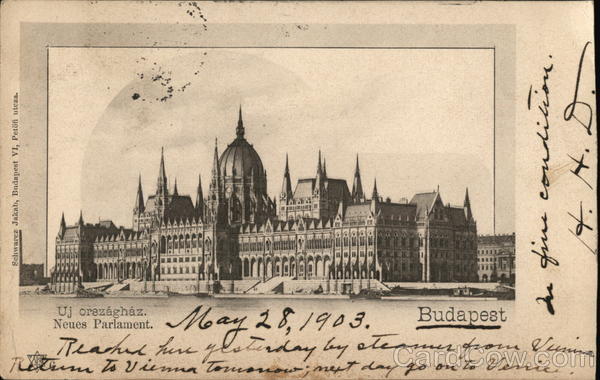 Schwarcz Jakab, Budapest VI, Petőfi utcza.
Uj országház.
Neues Parlament.
Budapest
May 28, 1903.
Reached here yesterday by steamer from Vienna
Return to Vienna tomorrow; next day go on to
In fine condition.
H. H. D.
CardCow.com